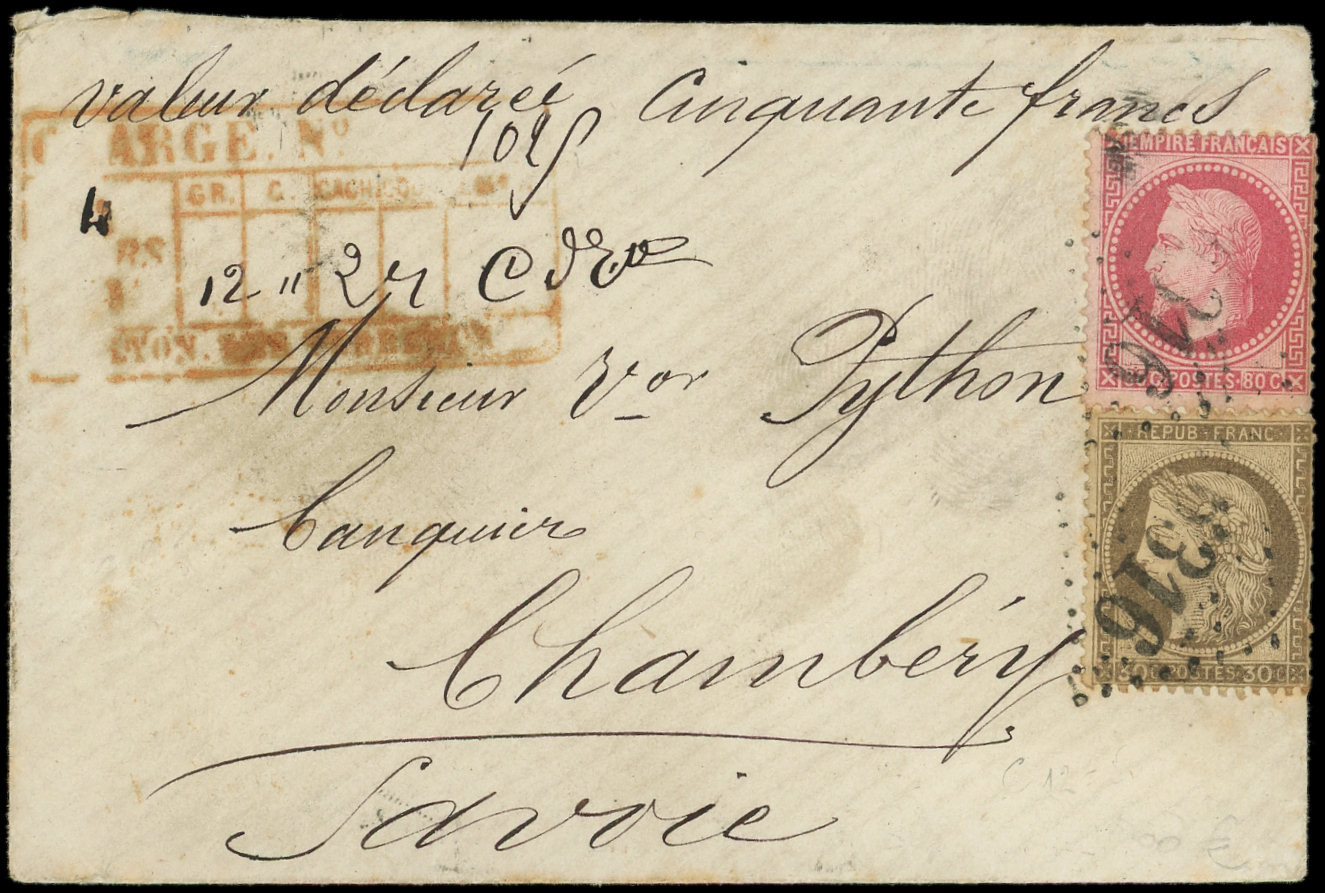 valeur déclareé Cinquante francs
ARGE. Nº
1025
GR. C. CACH
4
RS
12 " 2
LYON. LES TERREAUX
Monsieur Vor Python
banquier
Chambéry
Savoie
EMPIRE FRANÇAIS
80 C POSTES 80 C
REPUB FRANC
30 C POSTES 30 C
6316